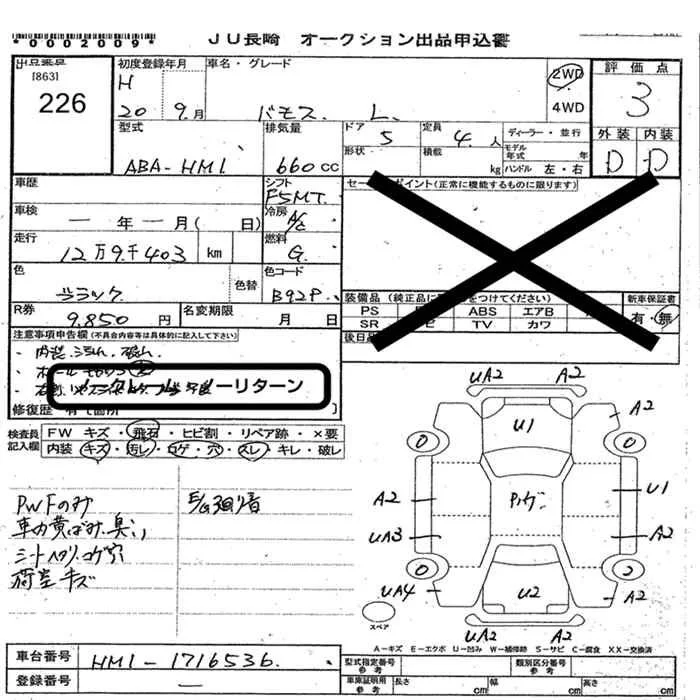 *0002009*
JU長崎 オークション出品申込書
出品番号
[863]
226
初度登録年月
H
20 9.月
車名・グレード
バモス L.
2WD
4WD
評価点
3
外装 内装
D D
型式
ABA-HM1.
排気量
660cc
ドア
5
形状
定員
4.人
積載
kg
ディーラー・並行
モデル年式 年
ハンドル 左・右
車歴
シフト
F5MT.
車検
一年一月( 日)
冷房
A/C
走行
12万9千403 km
燃料
G.
色
ブラック
色替
色コード
B92P.
R券
9.850円
名変期限
月 日
セールスポイント(正常に機能するものに限ります)
装備品(純正品に をつけてください)
新車保証書
PS ABS エアB
有・無
SR TV カワ
後日品
注意事項申告欄(不具合内容等は具体的に記入して下さい)
ノークレーム ノーリターン
修復歴 有( 箇所 )
検査員
記入欄
FW キズ・飛石・ヒビ割・リペア跡・×要
内装・キズ・汚レ・コゲ・穴・スレ・キレ・破レ
PWFのみ
車内黄ばみ.臭い
シートヘタリ.コゲ穴
荷室キズ
UA2 A2
A2
U1
0 0
A2
U1
UA3
A2
0 2
UA4
U2
A2
UA2 A2
スペア
A-キズ E-エクボ U-凹み W-補修跡 S-サビ C-腐食 XX-交換済
車台番号
HM1-1716536.
登録番号
—
型式指定番号
参考
類別区分番号
参考
車庫証明用
参考
長さ cm 幅 cm 高さ cm